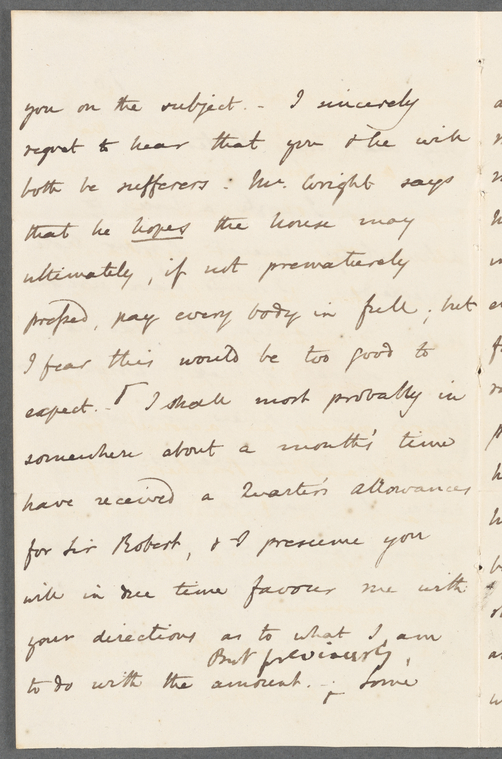 you on the subject. - I sincerely
regret to hear that you & he will
both be sufferers. Mr. Wright says
that he hopes the house may
ultimately, if not prematurely
pressed, pay every body in full; but
I fear this would be too good to
expect. - I shall most probably in
somewhere about a month's time
have received a Quarter's allowances
for Sir Robert, & I presume you
will in due time favour me with
your directions as to what I am
But previously,
to do with the amount. - Some